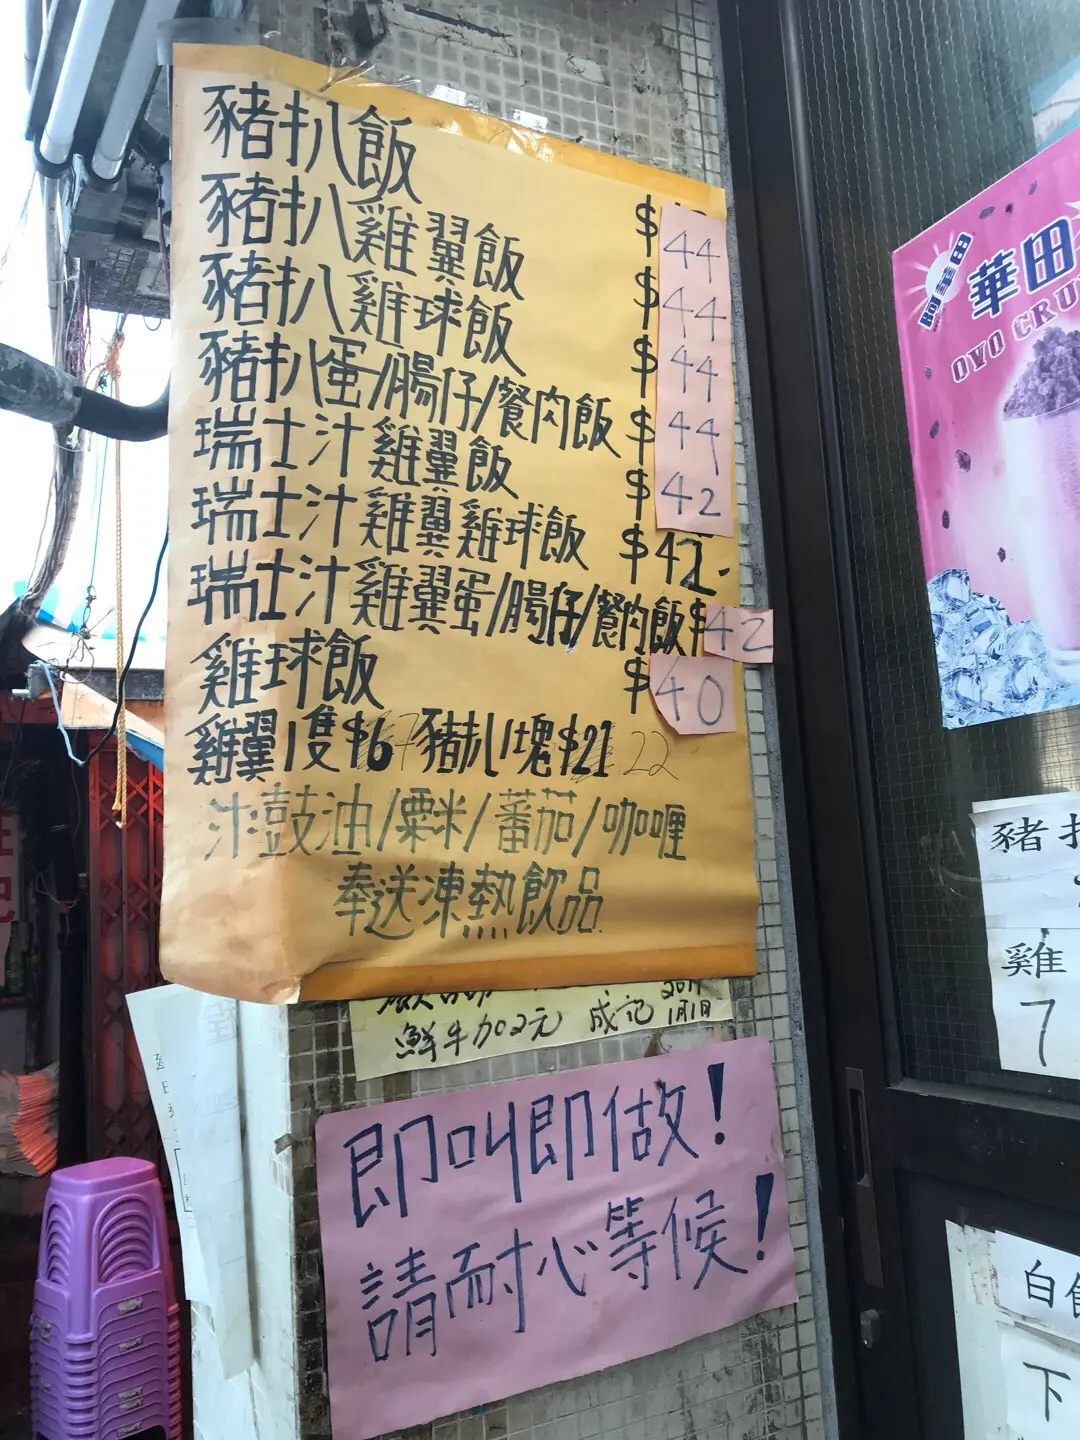 豬扒飯 $44
豬扒雞翼飯 $44
豬扒雞球飯 $44
豬扒蛋/腸仔/餐肉飯 $44
瑞士汁雞翼飯 $42
瑞士汁雞翼雞球飯 $42
瑞士汁雞翼蛋/腸仔/餐肉飯 $42
雞球飯 $40
雞翼1隻$6 7 豬扒1塊$21 22
汁:豉油/粟米/蕃茄/咖喱
奉送凍熱飲品
鮮牛加2元 成記 1月1日
即叫即做!
請耐心等候!
阿華田
華田
OVO CRU
豬扒
雞
7
白飯
下